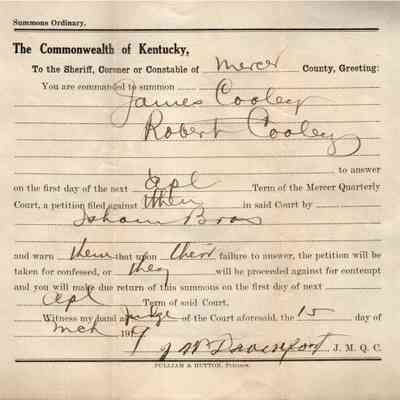 Summons Ordinary.
The Commonwealth of Kentucky,
To the Sheriff, Coroner or Constable of Mercer County, Greeting:
You are commanded to summon
James Cooley
Robert Cooley
to answer
on the first day of the next Apl Term of the Mercer Quarterly
Court, a petition filed against them in said Court by
Isham Bros
and warn them that upon their failure to answer, the petition will be
taken for confessed, or they will be proceeded against for contempt
and you will make due return of this summons on the first day of next
Apl Term of said Court.
Witness my hand a Judge of the Court aforesaid, the 15 day of
Mch 191
J W Davenport J. M. Q. C.
PULLIAM & HUTTON, Printers.